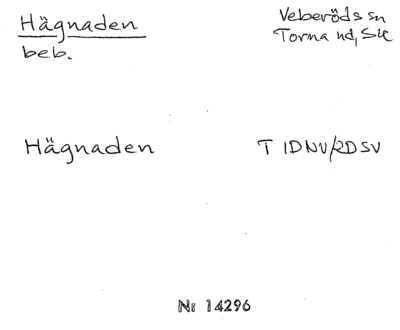 Hägnaden
beb.
Veberöds sn
Torna hd, Sk
Hägnaden
T 1DNV/2DSV
Nr 14296